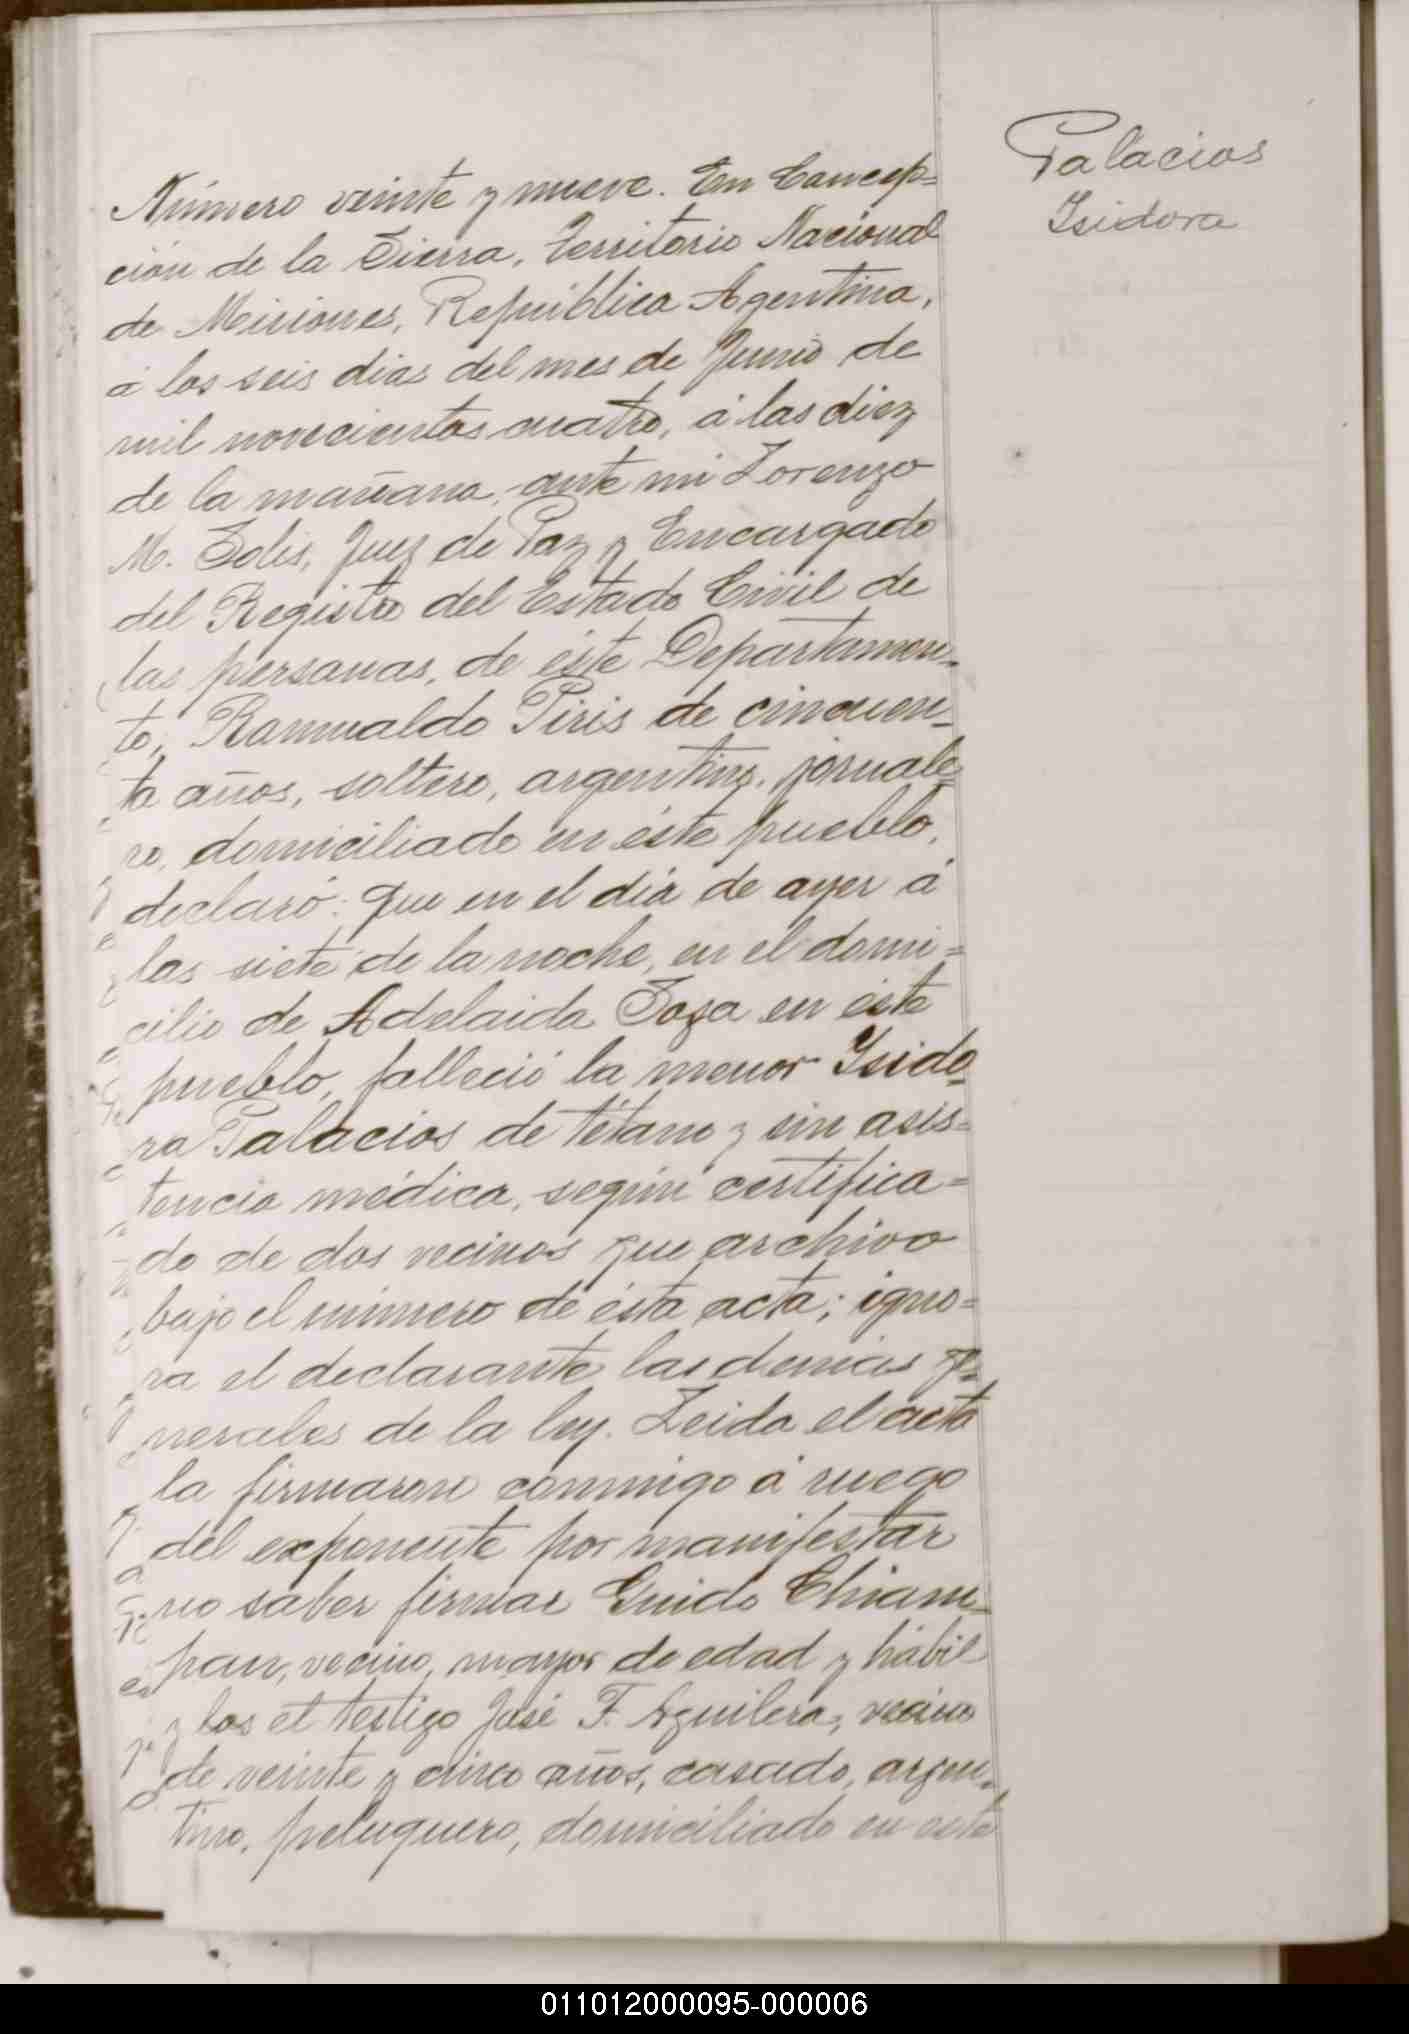 Palacios
Isidora
Número veinte y nueve. En Concep=
ción de la Sierra, Territorio Nacional
de Misiones, República Agentina,
á los seis dias del mes de Junio de
mil novecientos cuatro, á las diez
de la mañana, ante mi Lorenzo
M. Solis, Juez de Paz y Encargado
del Registro del Estado Civil de
las personas, de éste Departamen-
to, Ramualdo Piris de cincuen-
ta años, soltero, argentino, jornale-
ro, domiciliado en éste pueblo,
declaró: Que en el dia de ayer á
las siete de la noche, en el domi=
cilio de Adelaida Soza en éste
pueblo, falleció la menor Isido-
ra Palacios de tétano y sin asis=
tencia médica, según certifica=
do de dos vecinos que archivo
bajo el número de ésta acta; igno=
ra el declarante las demás ge-
nerales de la ley. Leida el acta
la firmaron conmigo á ruego
del exponente por manifestar
no saber firmar Guido Chiam-
pan, vecino, mayor de edad y hábil
y los et testigo José F. Aguilera, vecino
de veinte y cinco años, casado, argen-
tino, peluquero, domiciliado en este
011012000095-000006